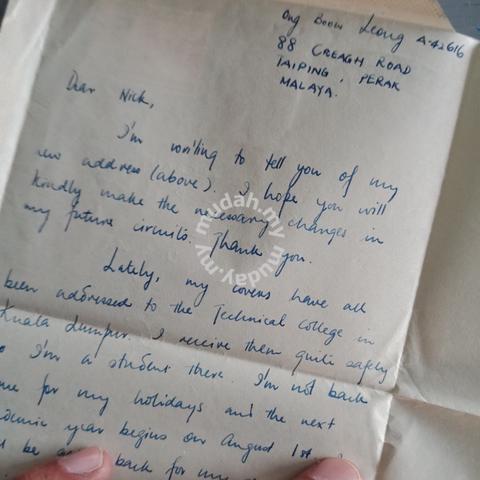 Ong Boon Leong A-42616
88 CREAGH ROAD
TAIPING, PERAK
MALAYA.
Dear Nick,
I'm writing to tell you of my
new address (above). I hope you will
kindly make the necessary changes in
my future circuits. Thank you.
Lately, my covers have all
been addressed to the Technical College in
Kuala Lumpur. I receive them quite safely
I'm a student there. I'm not back
me for my holidays and the next
demic year begins on August 1st
be back for my
mudah.my